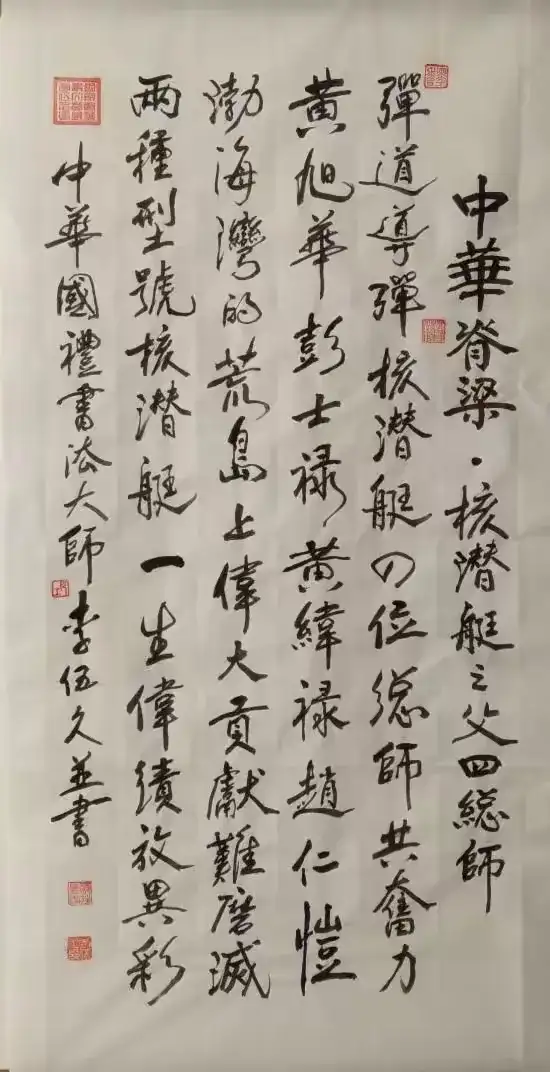 中華脊梁·核潜艇之父四総師
彈道導彈核潜艇四位總師共奮力
黄旭華彭士禄黄緯禄趙仁愷
渤海灣的荒島上偉大貢獻難磨滅
兩種型號核潜艇一生偉績放異彩
中華國禮書法大師李伍久並書